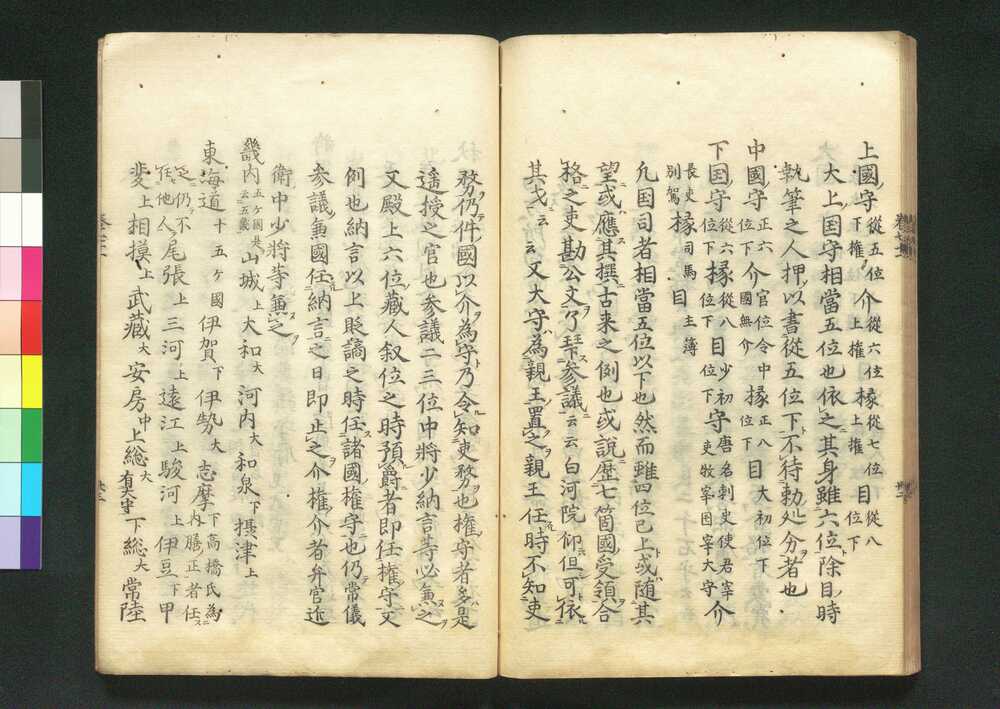 上國守 從五位下 權 介 從六位上 權 掾 從七位上 權 目 從八位下
大上国守相當五位也依之其身雖六位除目時
執筆之人押以書從五位下不待勅処分者也
中國守 正六位下 介 官位令中國無介 掾 正八位下 目 大初位下
下国守 從六位下 掾 從八位下 目 少初位下 守 唐名刺史使君宰吏牧宰困宰大守 介
長史別駕 掾 司馬 目 主簿
凢国司者相當五位以下也然而雖四位已上或随其
望或應其撰古来之例也或說歴七箇國受領合
格之吏勘公文了 参議云云白河院仰但可依
其 云云又大守為親王置之親王任時不知吏
務仍件國以介為守乃令知吏務也權守者多是
遥授之官也参議二三位中將少納言等必兼之
文殿上六位藏人叙位之時預爵者即任權守又
例也納言以上貶謫之時任諸國權守也仍常儀
参議兼國任納言之日即止之介權介者弁官近
衛中少將等兼之
畿内 五ケ國是云五畿 山城上 大和大 河内大 和泉下 摂津上
東海道 十五ケ國 伊賀下 伊勢大 志摩下 高橋氏為内膳正者任
之仍不任他人 尾張上 三河上 遠江上 駿河上 伊豆下 甲
斐上 相摸上 武藏大 安房中 上総大 下総大 常陸